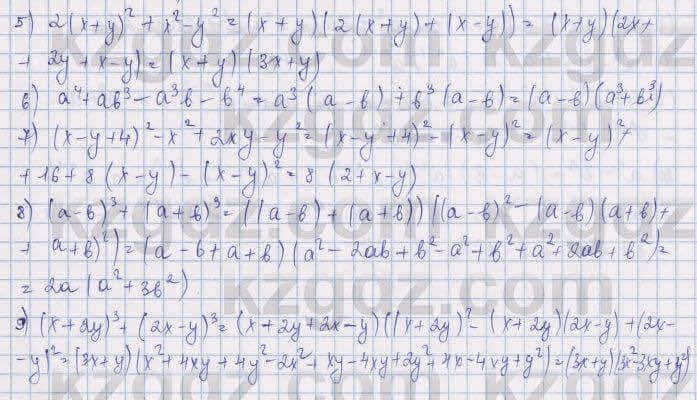 5) 2(x+y)² + x²-y² = (x+y)(2(x+y)+(x-y)) = (x+y)(2x+
+ 2y+x-y) = (x+y)(3x+y)
6) a⁴+ab³-a³b-b⁴ = a³(a-b)+b³(a-b) = (a-b)(a³+b³)
7) (x-y+4)²-x²+2xy-y² = (x-y+4)²-(x-y)² = (x-y)²+
+16+8(x-y)-(x-y)² = 8(2+x-y)
8) (a-b)³+(a+b)³ = ((a-b)+(a+b))((a-b)²-(a-b)(a+b)+
+ a+b)²) = (a-b+a+b)(a²-2ab+b²-a²+b²+a²+2ab+b²) =
= 2a(a²+3b²)
9) (x+2y)³+(2x-y)³ = (x+2y+2x-y)((x+2y)²-(x+2y)(2x-y)+(2x-
-y)² = (3x+y)(x²+4xy+4y²-2x²+xy-4xy+2y²+4x-4xy+y²) = (3x+y)(3x²-3xy+y²)
kzgdz.com
kzgdz.com
kzgdz.com